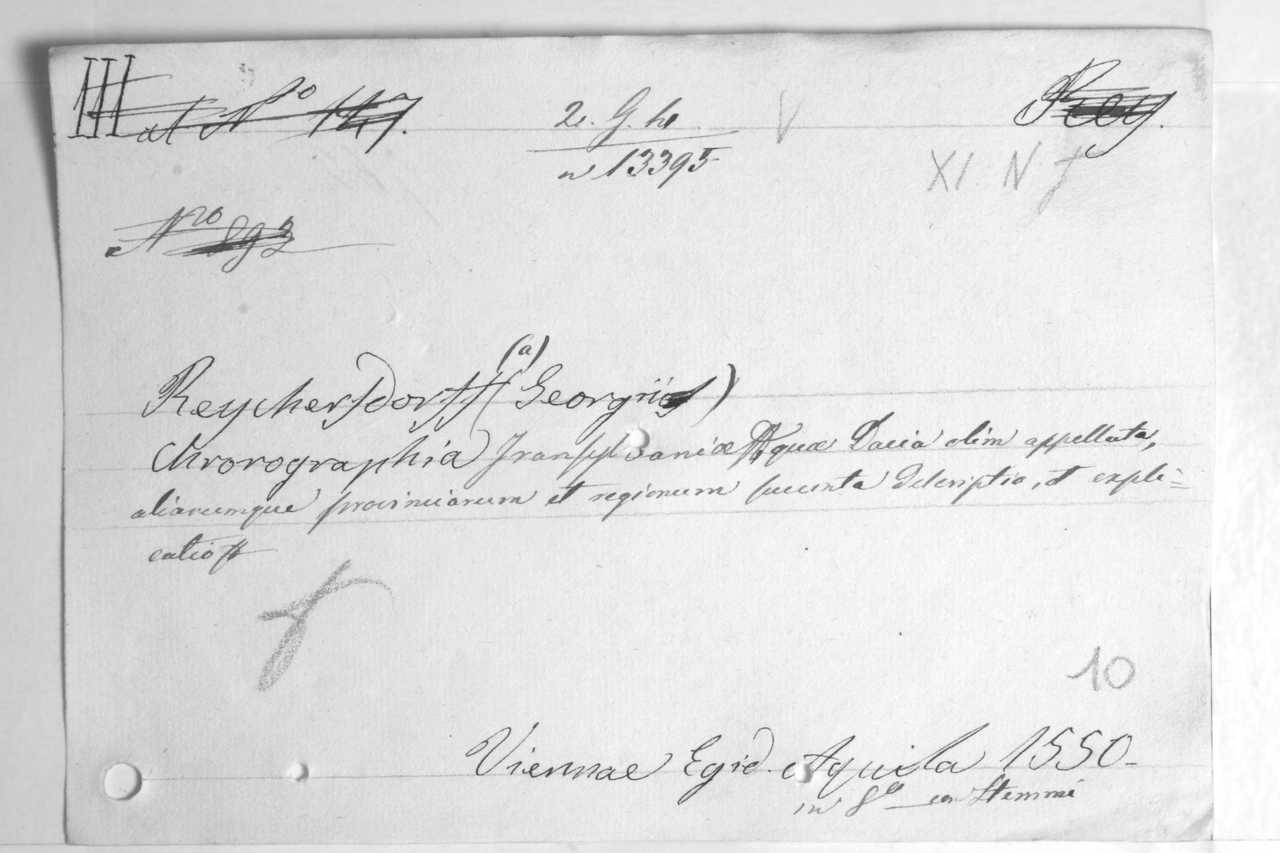 III
at No 147.
2. G. h
n 13395
V
Rey.
XI N f
Nro 892
(a)
Reychersdorff (Georgii)
Chrorographia Transylvaniæ quæ Dacia olim appellata,
aliarumque provinciarum et regionum succinta descriptio, et expli=
catio
10
Viennae Egid. Aquila 1550
in 8o con Stemmi